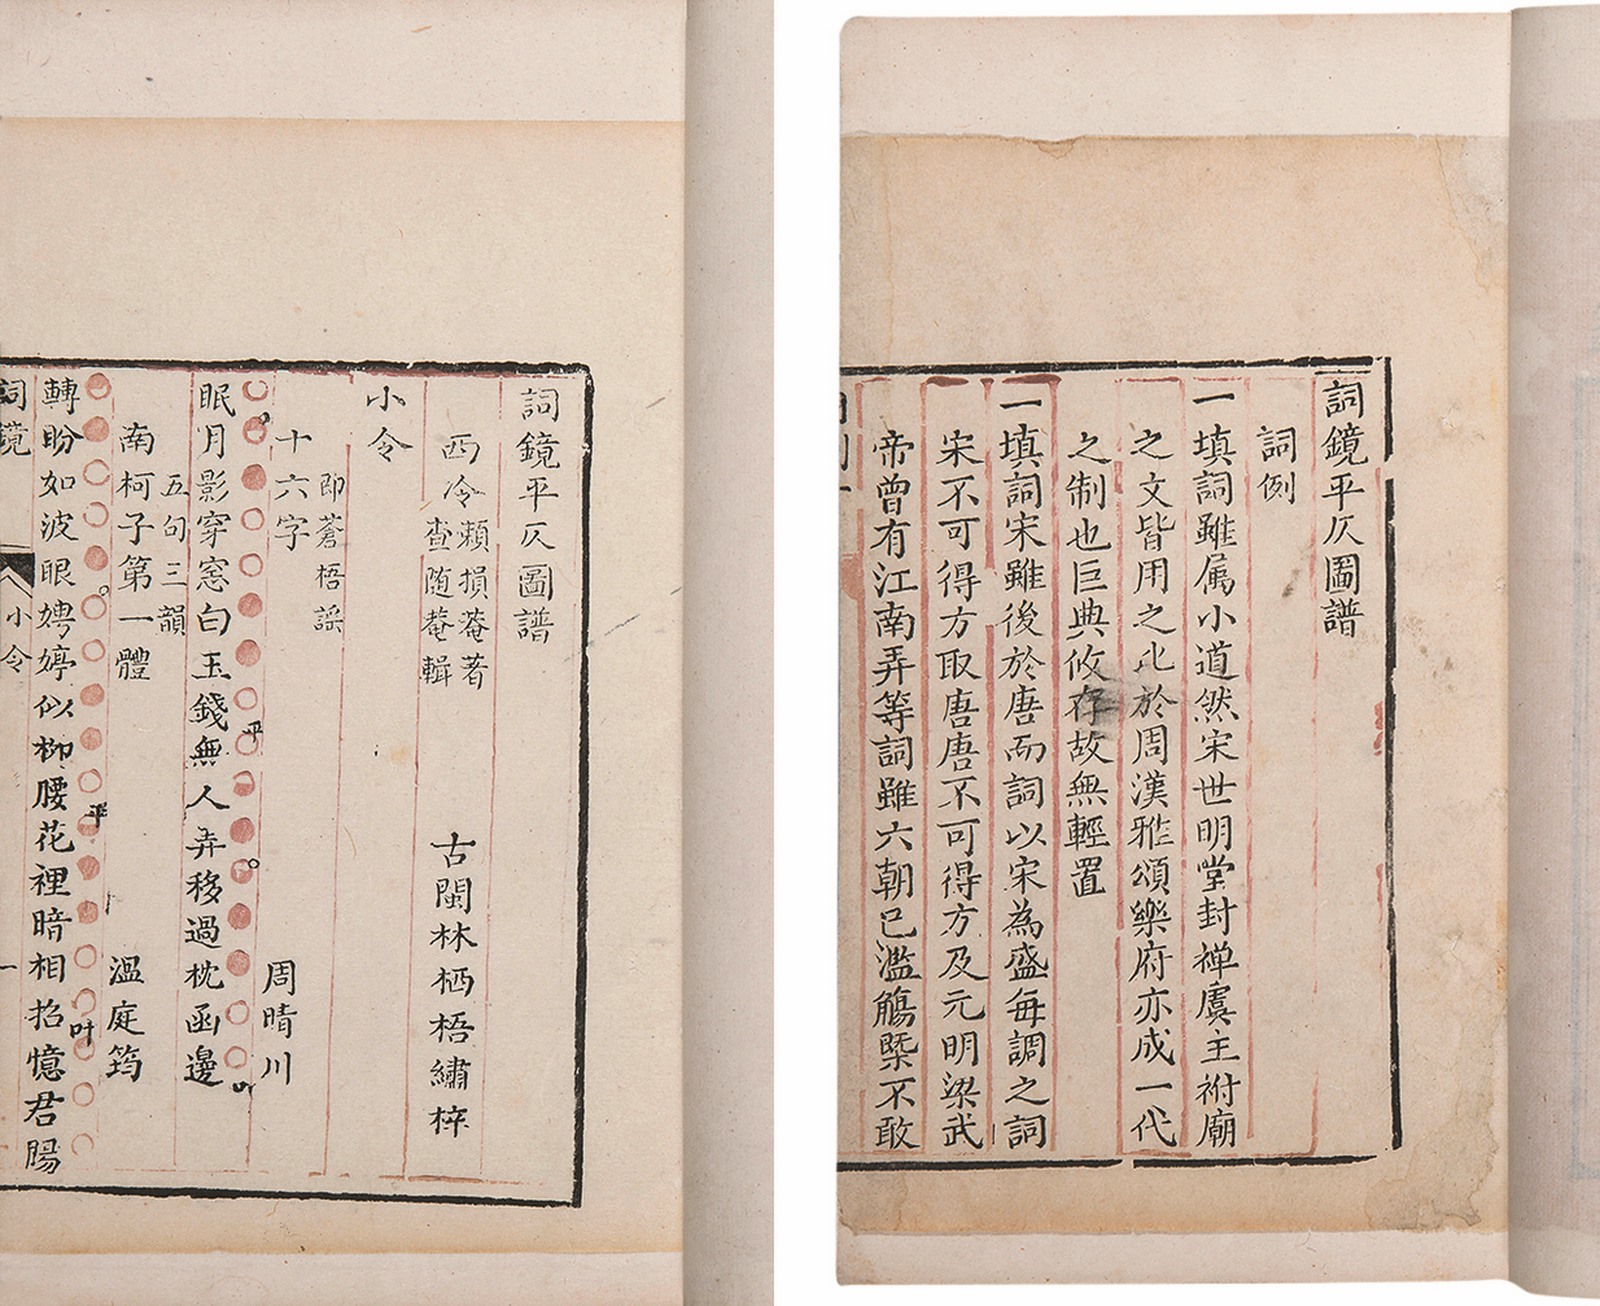 詞鏡平仄圖譜
詞例
一填詞雖属小道然宋世明堂封禅虞主祔廟
之文皆用之比於周漢雅頌樂府亦成一代
之制也巨典攸存故無輕置
一填詞宋雖後於唐而詞以宋為盛每調之詞
宋不可得方取唐唐不可得方及元明梁武
帝曾有江南弄等詞雖六朝已濫觴槩不敢
詞鏡平仄圖譜
西冷賴損菴著
查随菴輯
古閩林栖梧繡梓
小令
即蒼梧謡
十六字
周晴川
平
叶
眠月影穿窓白玉錢無人弄移過枕函邊
五句三韻
南柯子第一體
溫庭筠
平
叶
轉盼如波眼娉婷似柳腰花裡暗相招憶君腸
詞鏡
小令
一